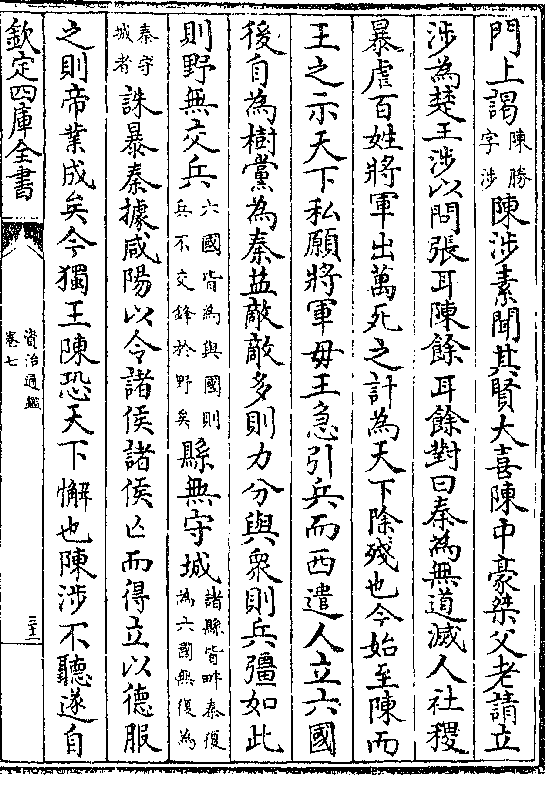 門上謁陳勝字涉陳涉素聞其賢大喜陳中豪桀父老請立
涉為楚王涉以問張耳陳餘耳餘對曰秦為無道滅人社稷
暴虐百姓將軍出萬死之計為天下除殘也今始至陳而
王之示天下私願將軍毋王急引兵而西遣人立六國
後自為樹黨為秦益敵敵多則力分與眾則兵彊如此
則野無交兵六國皆為與國則兵不交鋒於野矣縣無守城諸縣皆畔秦復為六國無復為
秦守城者誅暴秦據咸陽以令諸侯諸侯亡而得立以德服
之則帝業成矣今獨王陳恐天下懈也陳涉不聽遂自
欽定四庫全書
資治通鑑
卷七
三十二